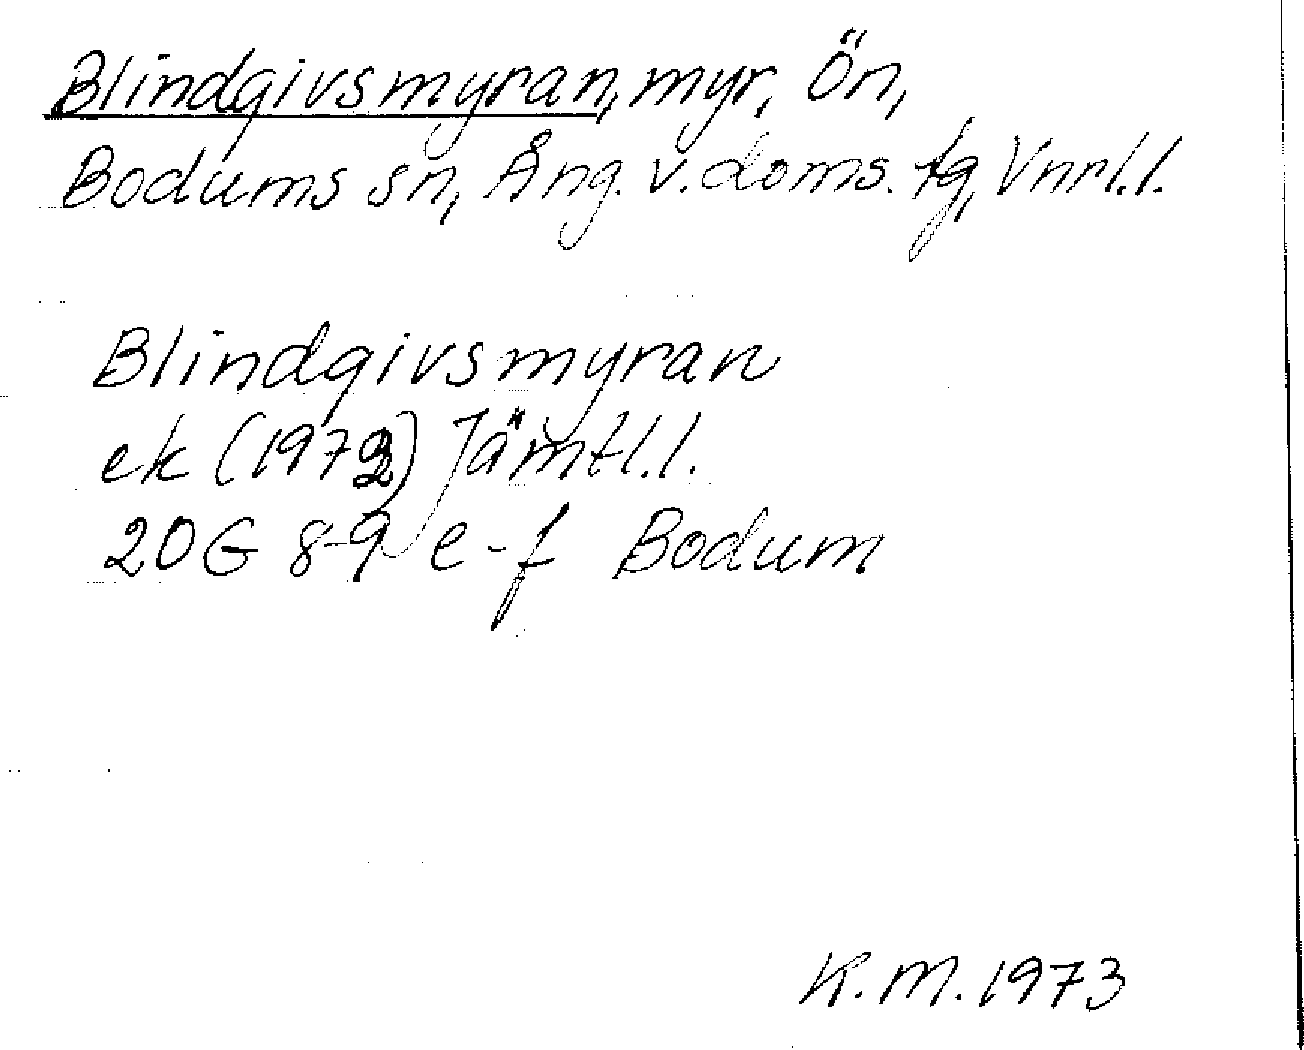 Blindgivsmyran, myr, Ön,
Bodums sn, Ång. v. doms. tg, Vnrl.l.
Blindgivsmyran
ek (1972) Jämtl.l.
20G 8-9 e-f Bodum
K.M. 1973